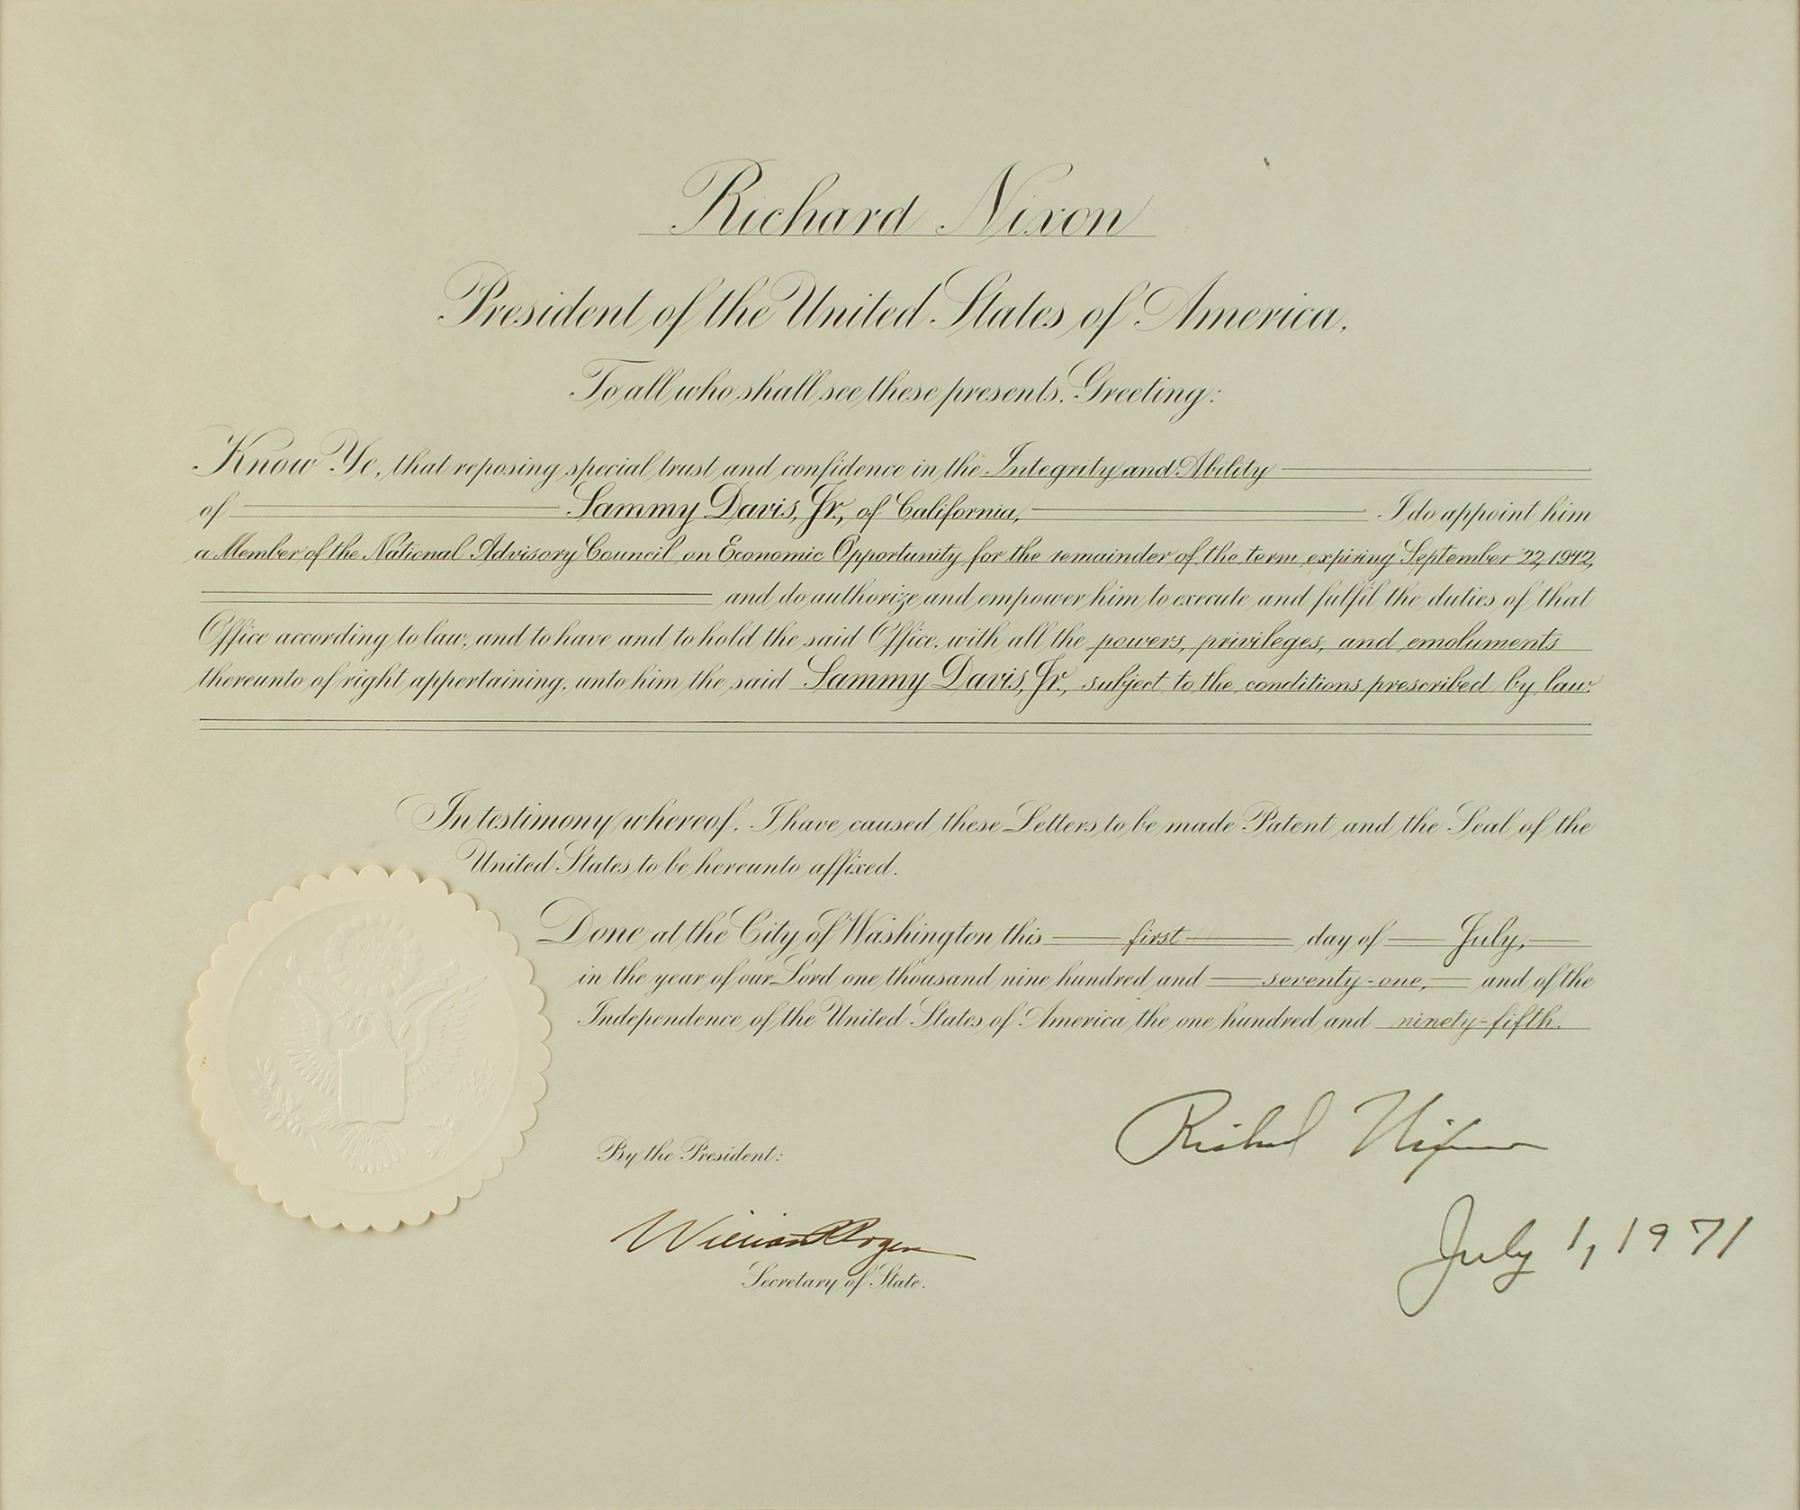 Richard Nixon
President of the United States of America.
To all who shall see these presents, Greeting:
Know Ye, that reposing special trust and confidence in the Integrity and Ability
of Sammy Davis, Jr., of California, I do appoint him
a Member of the National Advisory Council on Economic Opportunity for the remainder of the term expiring September 22, 1972,
and do authorize and empower him to execute and fulfil the duties of that
Office according to law, and to have and to hold the said Office, with all the powers, privileges, and emoluments
thereunto of right appertaining, unto him the said Sammy Davis, Jr., subject to the conditions prescribed by law.
In testimony whereof, I have caused these Letters to be made Patent and the Seal of the
United States to be hereunto affixed.
Done at the City of Washington this first day of July,
in the year of our Lord one thousand nine hundred and seventy-one, and of the
Independence of the United States of America the one hundred and ninety-fifth.
Richard Nixon
By the President:
July 1, 1971
William P Rogers
Secretary of State.